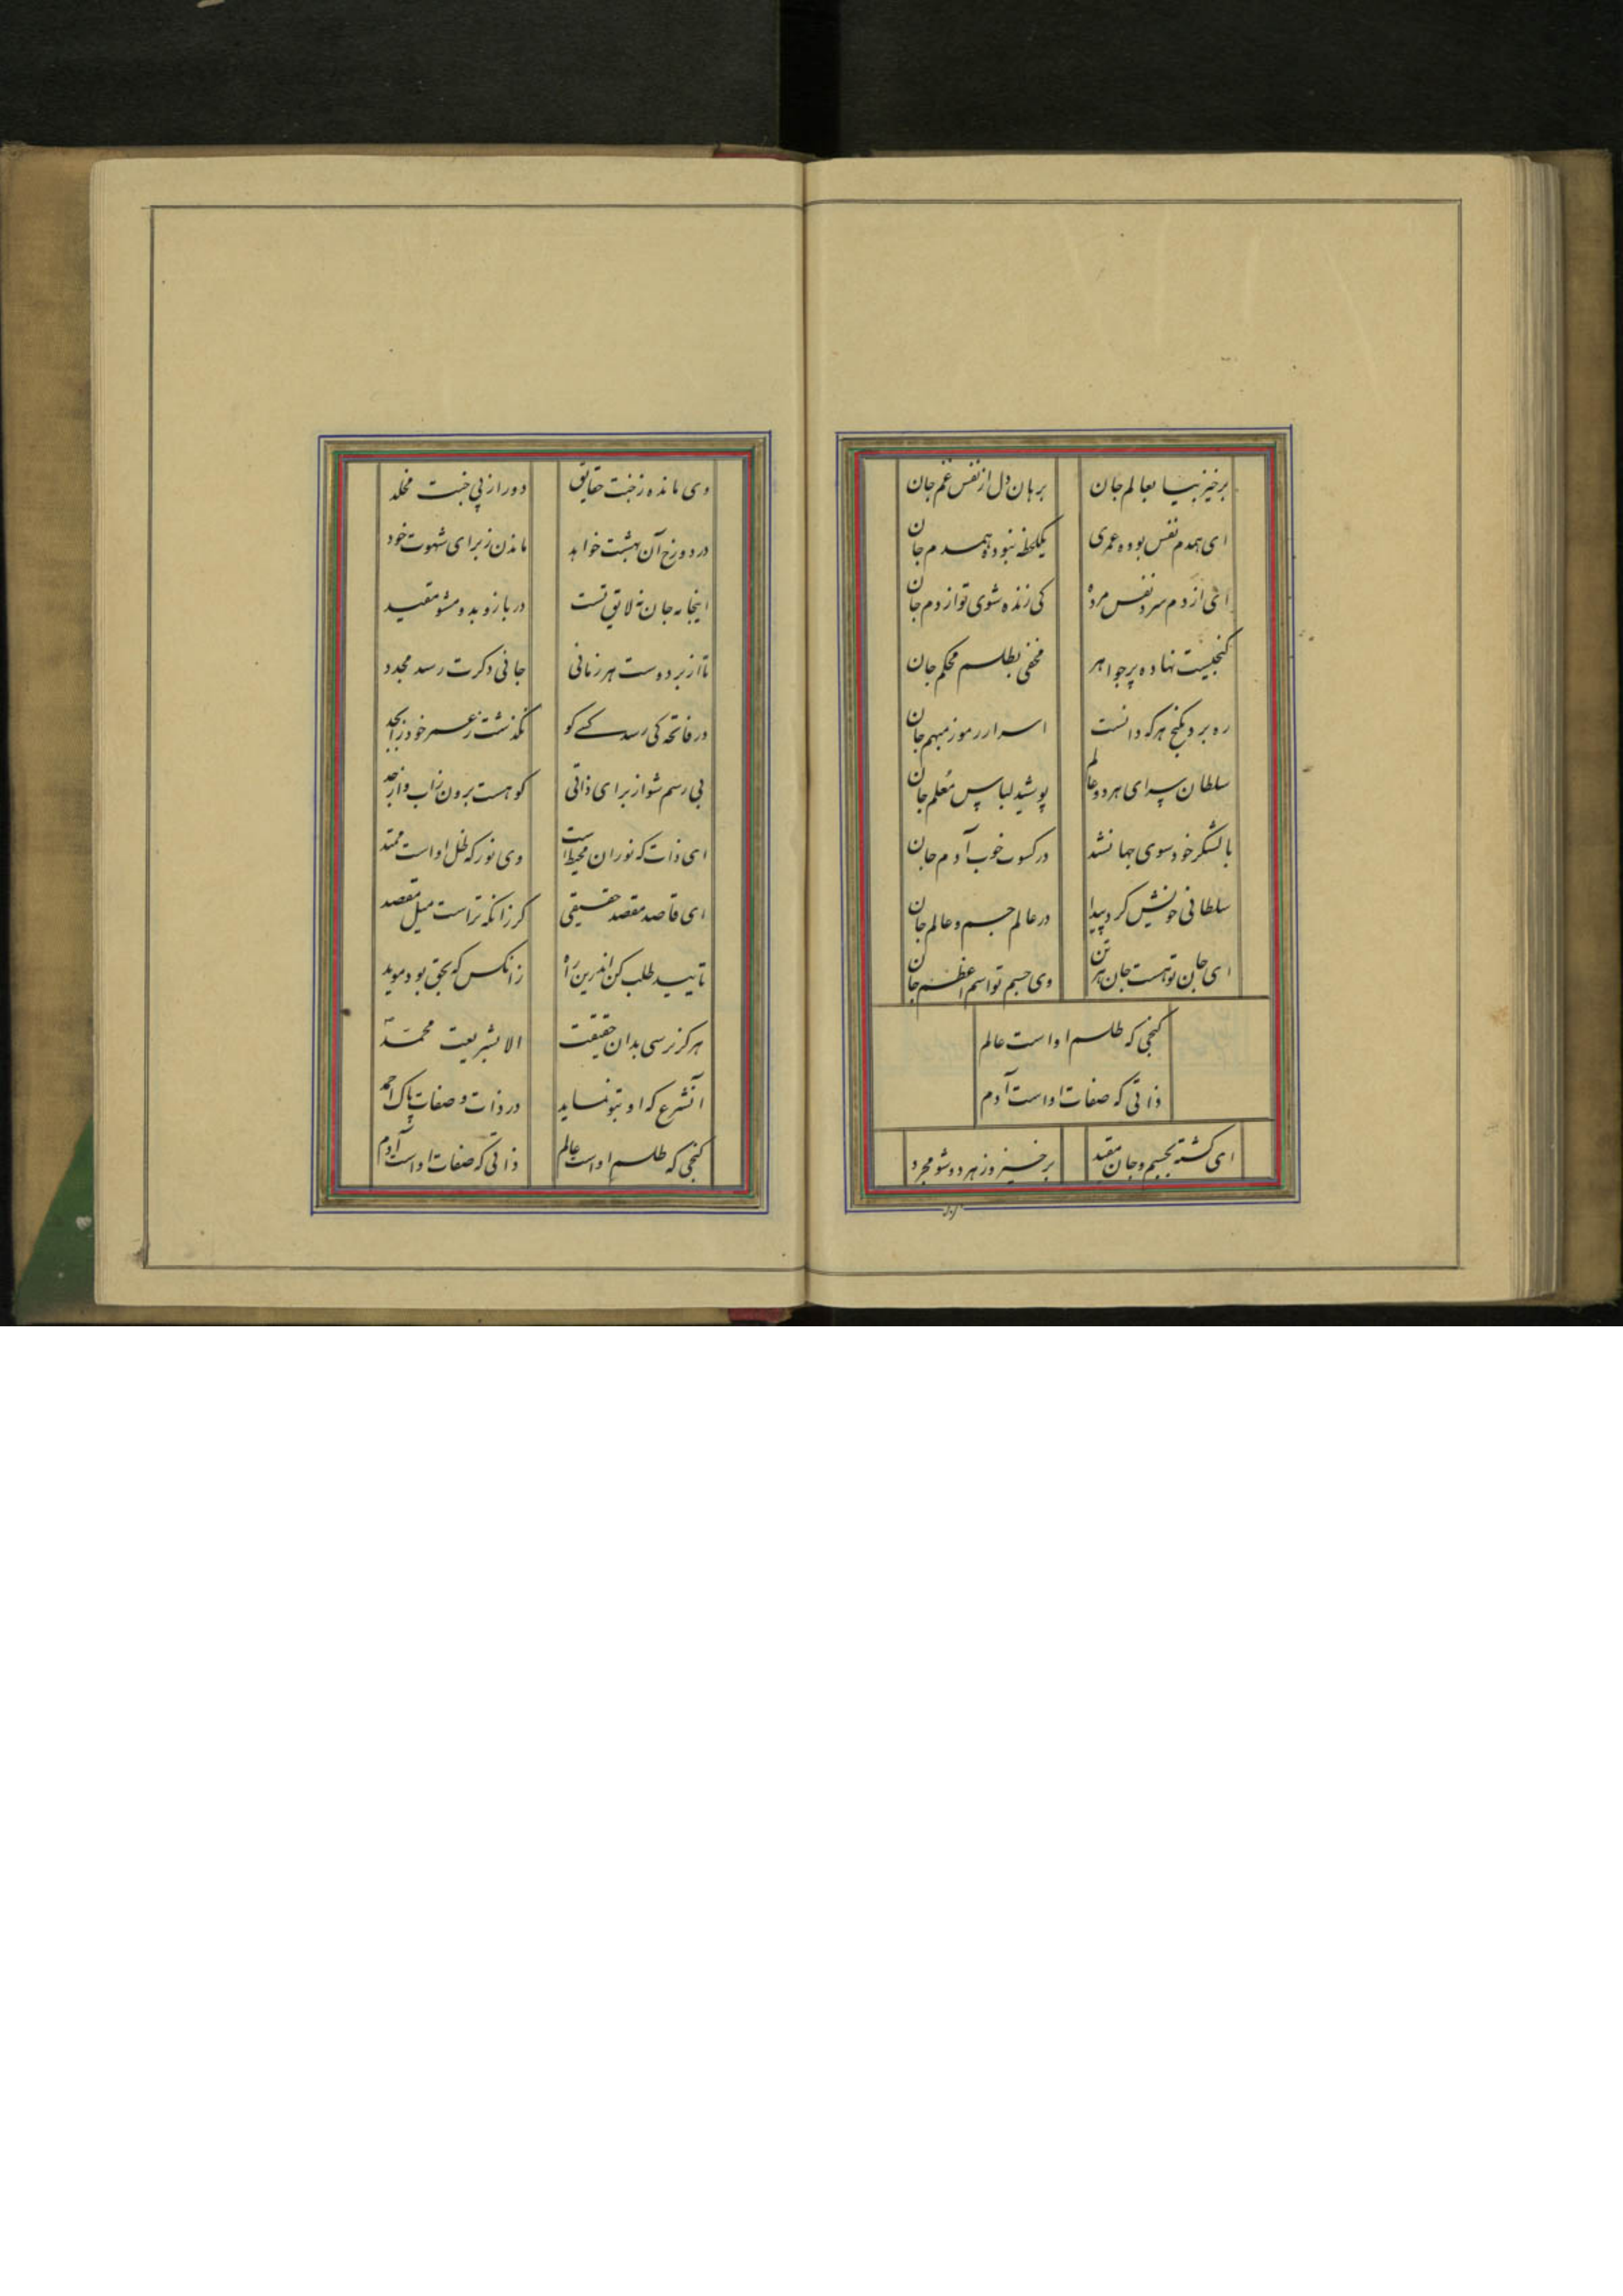 برخیز بیا بعالم جان برهان دل از نفس غم جان
ای همدم نفس بوده عمری یکلحظه نبوده همدم جان
ای از دم سرد نفس مرده کی زنده شوی تو از دم جان
کنجیست نهاده پر جواهر مخفی بطلسم محکم جان
ره برد بکنج هر که دانست اسرار رموز مبهم جان
سلطان سرای هر دو عالم پوشید لباس معلم جان
بالشکر خود سوی جهان شد در کسوت خوب آدم جان
سلطانی خویش کرد پیدا در عالم جسم و عالم جان
ای جان تو هست جان هر تن وی جسم تو اسم اعظم جان
کنجی که طلسم او است عالم
ذاتی که صفات او است آدم
ای کشته بجسم و جان مقید برخیز و ز هر دو شو مجرد
وی مانده ز جنت حقایق دور از پی جنت مخلد
در دوزخ آن بهشت خواهد ماندن ز برای شهوت خود
اینجا به جان نه لایق تست در باز و بدو مشو مقید
تا از بر دوست هر زمانی جانی دکرت رسد مجدد
در فاتحه کی رسد کسی کو نکذشت ز عسر خود ز ابجد
بی رسم شو از برای ذاتی کو هست برون ز اب و از جد
ای ذات که نور ان محیط است وی نور که ظل او است ممتد
ای قاصد مقصد حقیقی کر زانکه تراست میل مقصد
تایید طلب کن اندرین راه زانکس که بحق بود موید
هرکز نرسی بدان حقیقت الا بشریعت محمد
آنشرع که او بتو نماید در ذات و صفات پاک احمد
کنجی که طلسم او است عالم ذاتی که صفات او است آدم